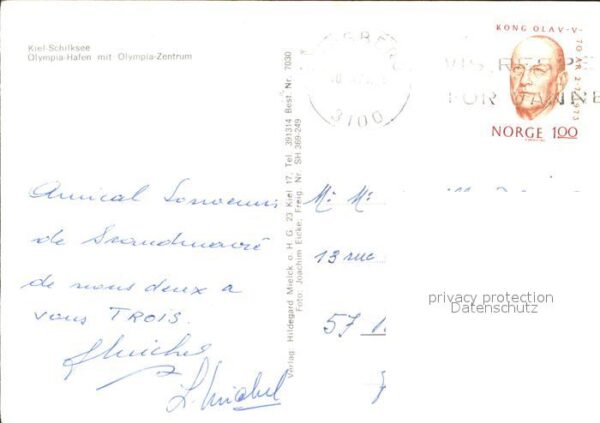 Kiel-Schilksee
Olympia-Hafen mit Olympia-Zentrum
KONG OLAV·V·
70 ÅR 2·7·1973
NORGE 1.00
VIS RESPE
FOR VANNE
3100
Verlag: Hildegard Mielck o. H. G. 23 Kiel 17, Tel. 391314 Best. Nr. 7030
Foto: Joachim Eicke, Freig. Nr. SH 369-249
Amical Souvenir
de Scandinavie
de nous deux a
vous TROIS.
Michel
13 rue
57
privacy protection
Datenschutz